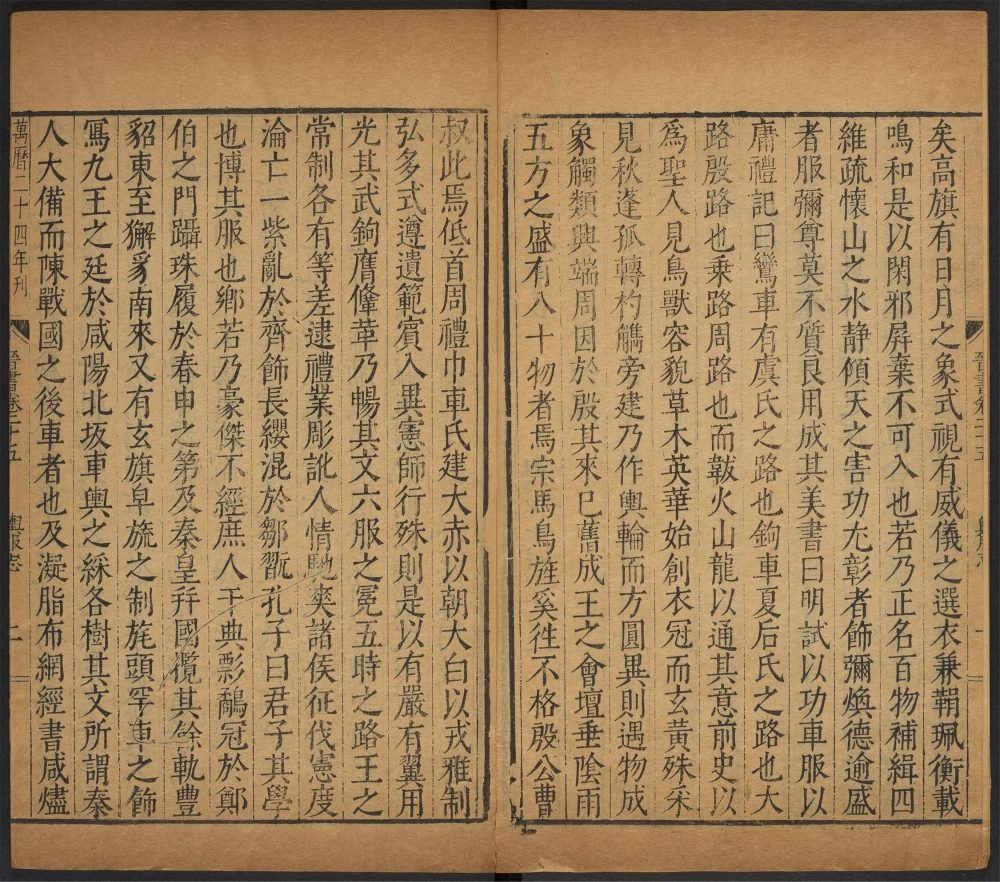 矣高旗有日月之象式視有威儀之選衣兼鞙珮衡載
鳴和是以閑邪屏棄不可入也若乃正名百物補緝四
維疏懷山之水静傾天之害功尤彰者飾彌煥德逾盛
者服彌尊莫不質良用成其美書曰明試以功車服以
庸禮記曰鸞車有虞氏之路也鉤車夏后氏之路也大
路殷路也乗路周路也而韍火山龍以通其意前史以
爲聖人見鳥獸容貌草木英華始創衣冠而玄黃殊采
見秋蓬孤轉杓觿旁建乃作輿輪而方圓異則遇物成
象觸類興端周因於殷其來已舊成王之會壇垂陰雨
五方之盛有八十物者焉宗馬鳥旌奚徃不格殷公曹
叔此焉低首周禮巾車氏建大赤以朝大白以戎雅制
弘多式遵遺範賓入異憲師行殊則是以有嚴有翼用
光其武鉤膺鞗革乃暢其文六服之冕五時之路王之
常制各有等差逮禮業彫訛人情馳爽諸侯征伐憲度
淪亡一紫亂於齊飾長纓混於鄒翫孔子曰君子其學
也博其服也鄉若乃豪傑不經庶人干典彯鷸冠於鄭
伯之門躡珠履於春申之第及秦皇幷國攬其餘軌豐
貂東至獬豸南來又有玄旗皁旒之制旄頭罕車之飾
寫九王之廷於咸陽北坂車輿之綵各樹其文所謂秦
人大備而陳戰國之後車者也及凝脂布網經書咸燼
萬曆二十四年刋
晉書卷二十五 輿服志 二